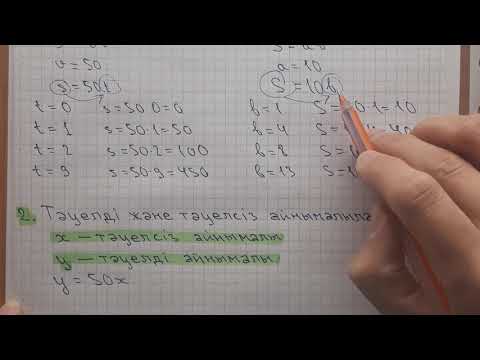 v = 50
a = 10
s = 50t
S = 10b
t = 0 s = 50·0 = 0 b = 1 S = 10·1 = 10
t = 1 s = 50·1 = 50 b = 4 S = 40
t = 2 s = 50·2 = 100 b = 8 S =
t = 9 s = 50·9 = 450 b = 13 S =
2. Тәуелді және тәуелсіз айнымалыла
x — тәуелсіз айнымалы
y — тәуелді айнымалы
y = 50x